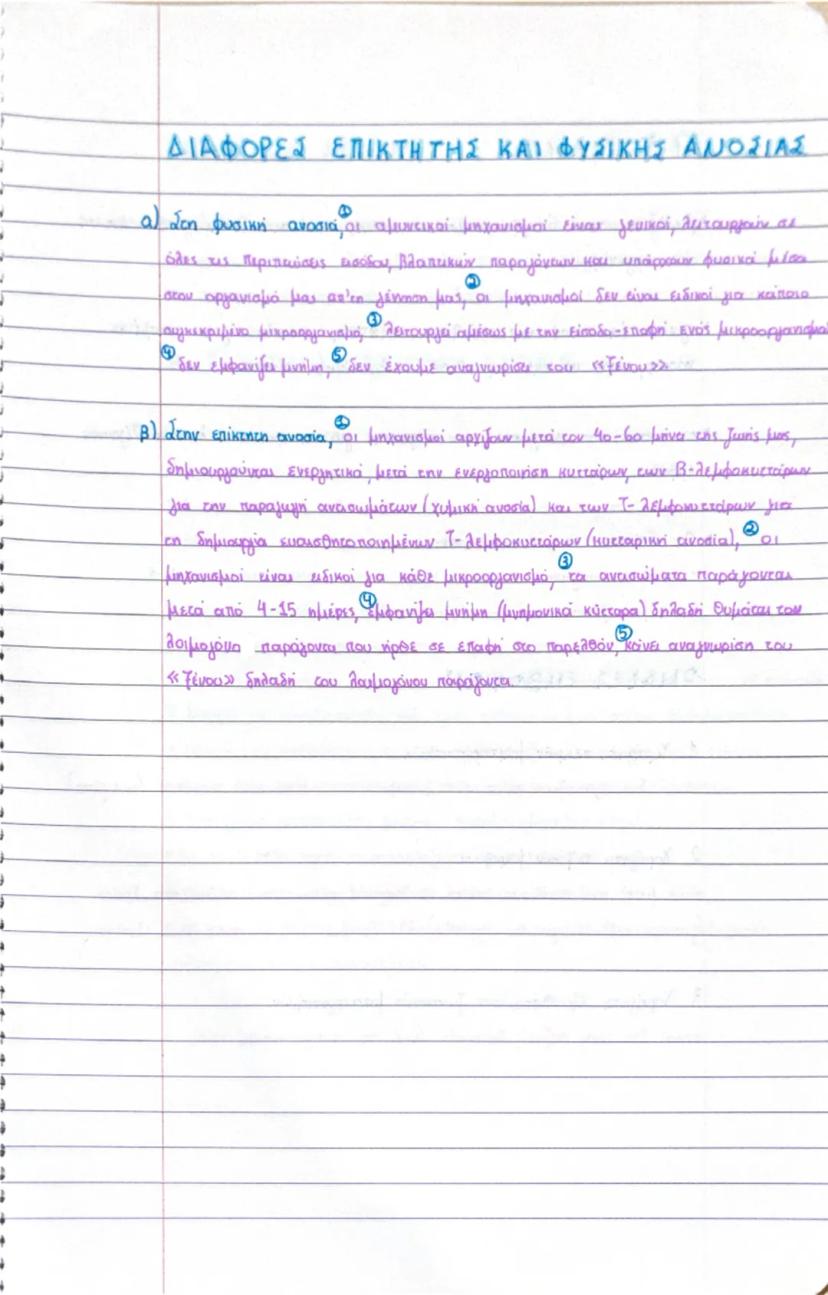 ΔΙΑΦΟΡΕΣ ΕΠΙΚΤΗΤΗΣ ΚΑΙ ΦΥΣΙΚΗΣ ΑΝΟΣΙΑΣ
α) Στη φυσική ανοσία, ① οι αμυντικοί μηχανισμοί είναι γενικοί, λειτουργούν σε
όλες τις περιπτώσεις εισόδου, βλαπτικών παραγόντων και υπάρχουν φυσικά μέσα
στον οργανισμό μας απ'τη γέννηση μας, ② οι μηχανισμοί δεν είναι ειδικοί για κάποιο
συγκεκριμένο μικροοργανισμό, ③ λειτουργεί αμέσως με την είσοδο-επαφή ενός μικροοργανισμού
④ δεν εμφανίζει μνήμη, ⑤ δεν έχουμε αναγνώριση του «ξένου»
β) Στην επίκτητη ανοσία, ① οι μηχανισμοί αρχίζουν μετά τον 4ο-6ο μήνα της ζωής μας,
δημιουργούνται ενεργητικά, μετά την ενεργοποίηση κυττάρων, των Β-λεμφοκυττάρων
για την παραγωγή αντισωμάτων (χυμική ανοσία) και των Τ-λεμφοκυττάρων για
τη δημιουργία ευαισθητοποιημένων Τ-λεμφοκυττάρων (κυτταρική ανοσία), ② οι
μηχανισμοί είναι ειδικοί για κάθε μικροοργανισμό, ③ τα αντισώματα παράγονται
μετά από 4-15 ημέρες, ④ εμφανίζει μνήμη (μνημονικά κύτταρα) δηλαδή θυμάται τον
λοιμογόνο παράγοντα που ήρθε σε επαφή στο παρελθόν, ⑤ κάνει αναγνώριση του
«ξένου» δηλαδή του λοιμογόνου παράγοντα.